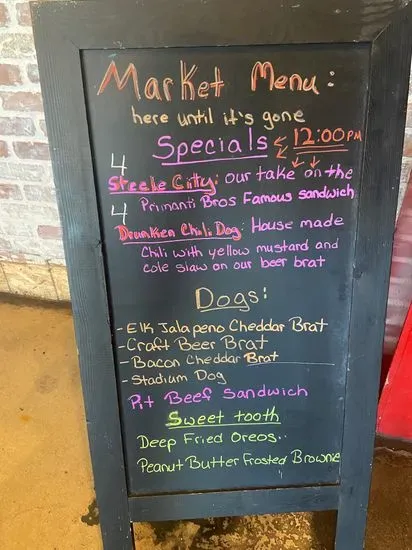 Market Menu:
here until it's gone
Specials 12:00PM
4
Steele Citty: our take on the
Primanti Bros Famous sandwich
4
Drunken Chili Dog: House made
Chili with yellow mustard and
cole slaw on our beer brat
Dogs:
- Elk Jalapeno Cheddar Brat
- Craft Beer Brat
- Bacon Cheddar Brat
- Stadium Dog
Pit Beef Sandwich
Sweet tooth
Deep Fried Oreos..
Peanut Butter Frosted Brownie